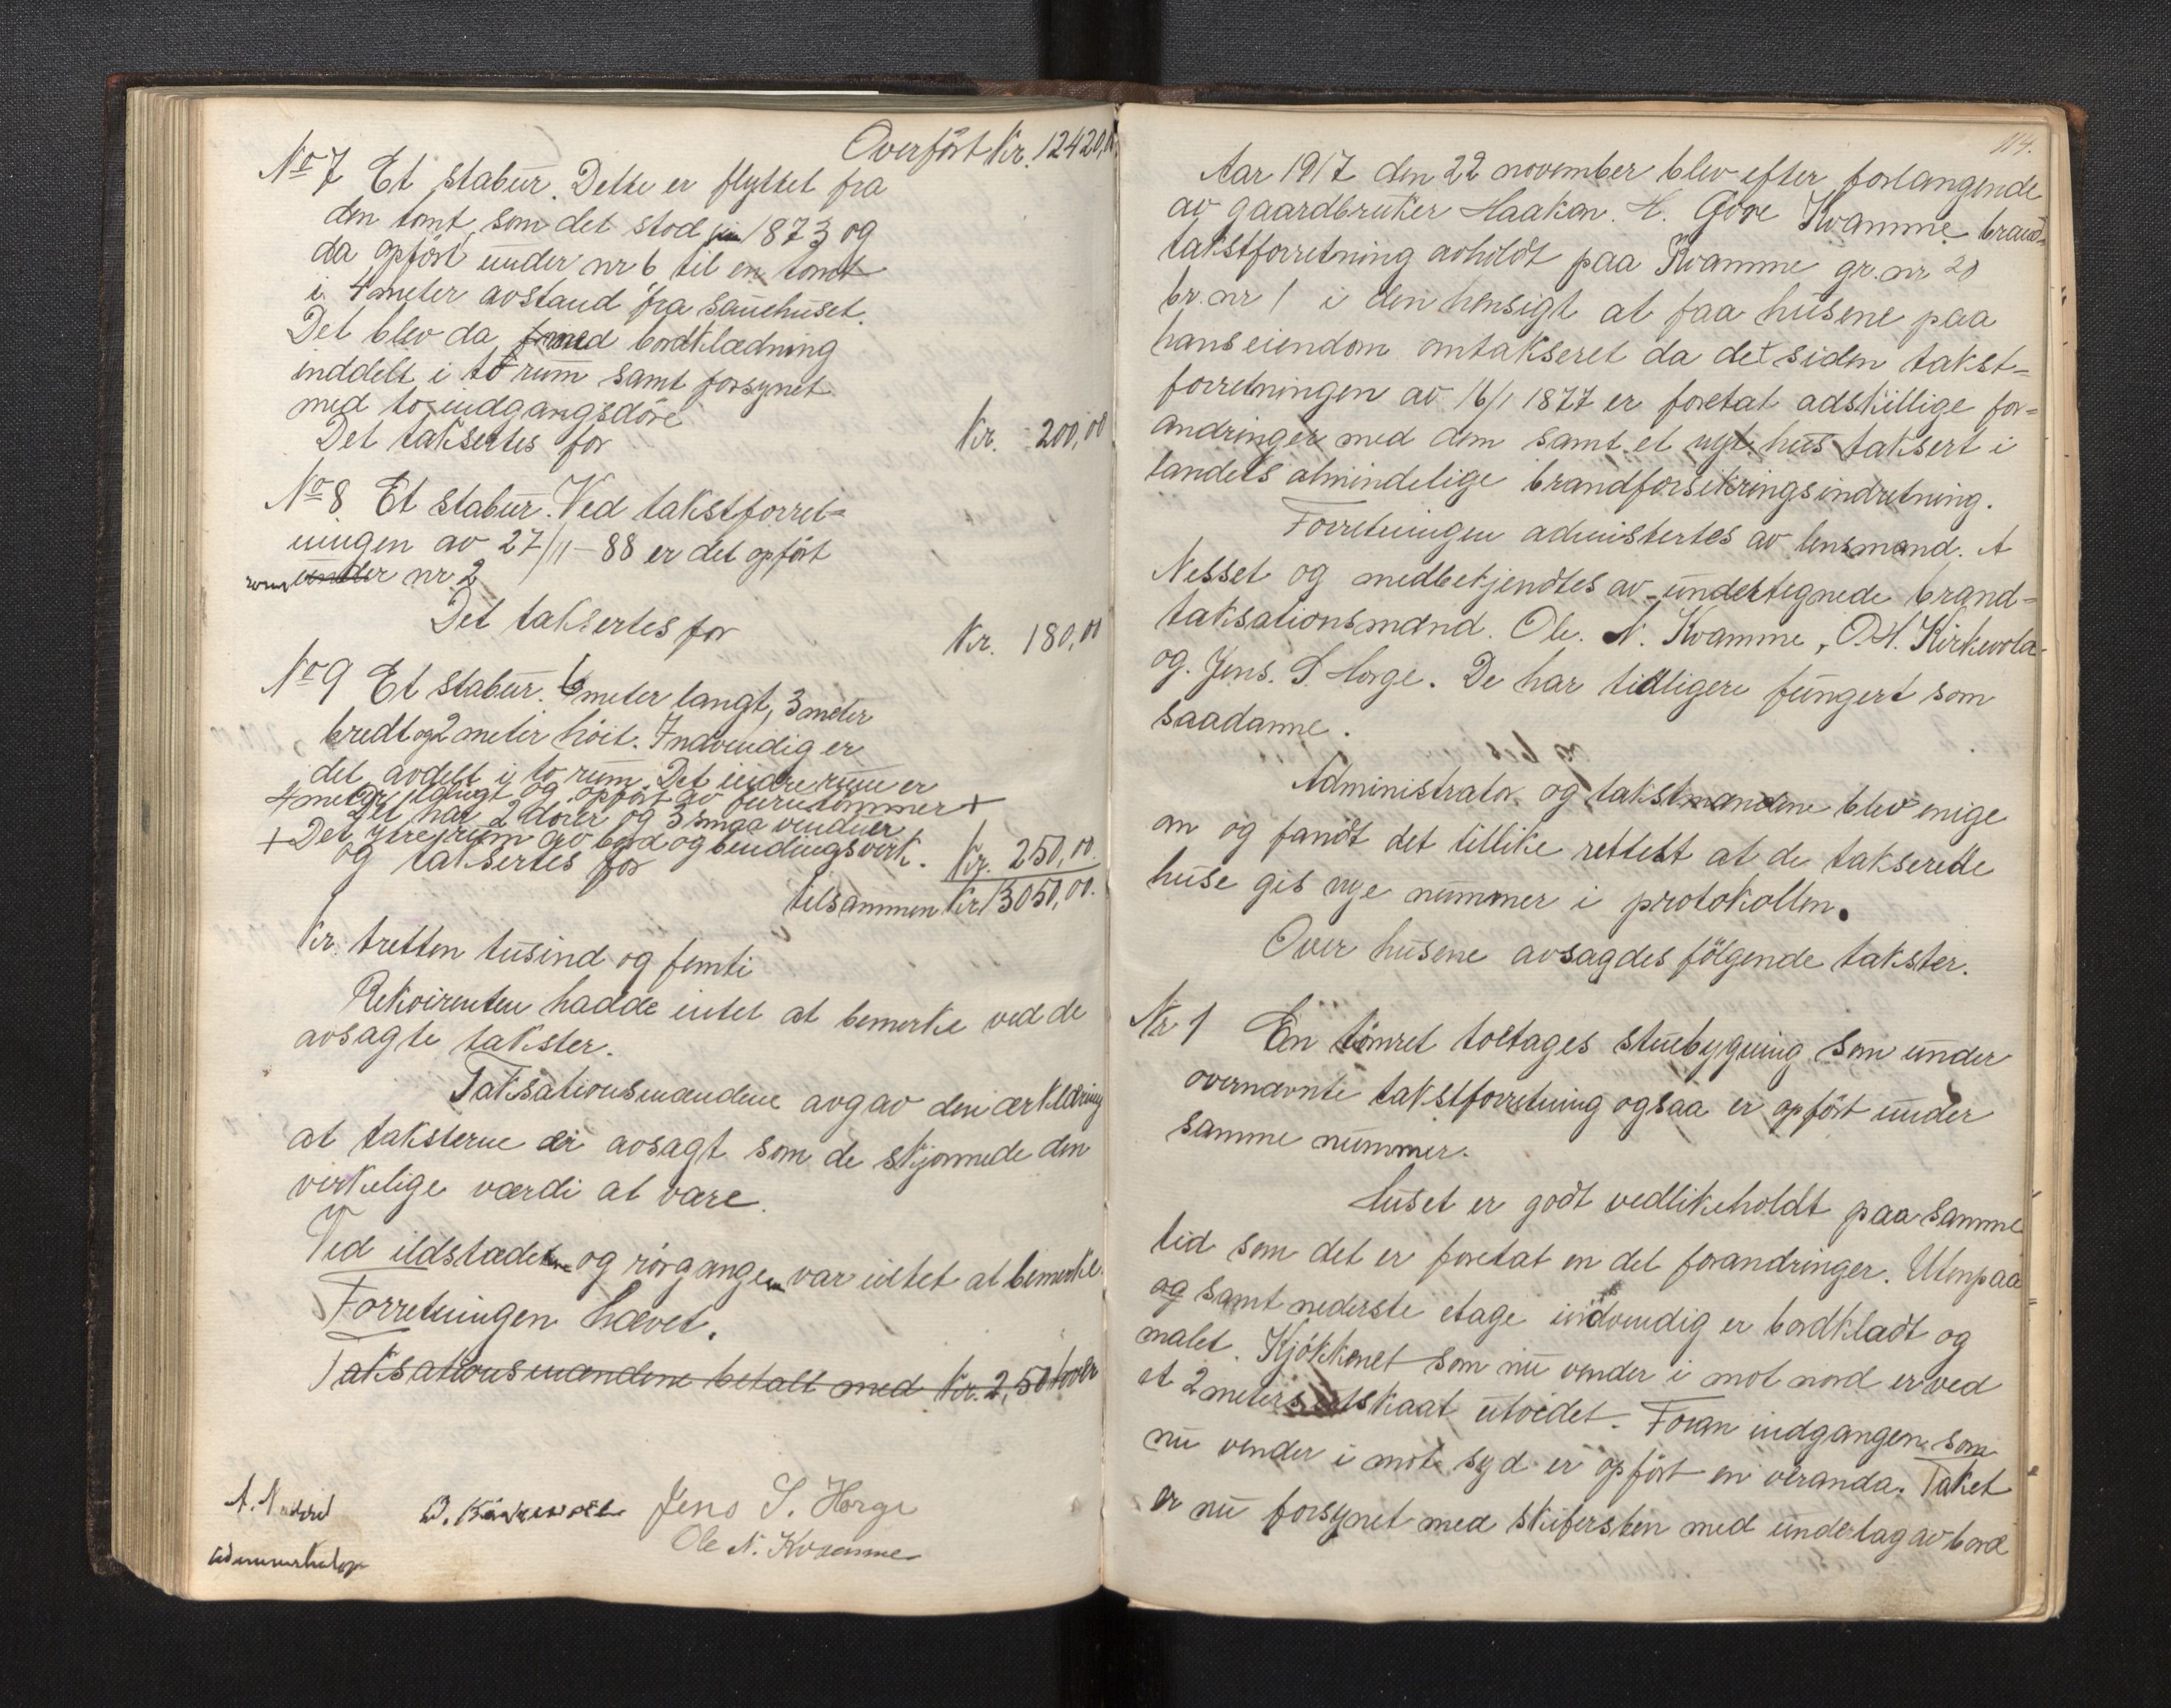 Overført Kr. 12420,00
No 7 Et stabur. Dette er flyttet fra
den tomt, som det stod i 1873 og
da opført under nr 6 til en tomt
i 4 meter avstand fra sauehuset.
Det blev da med bordklædning
inddelt i to rum samt forsynet
med to indgangsdøre
Det taksertes for Kr. 200,00
No 8 Et stabur. Ved takstforret=
ningen av 27/11-88 er det opført
som under nr. 2
Det taksertes for Kr. 180,00
No 9 Et stabur. 6 meter langt, 3 meter
bredt og 2 meter høit. Indvendig er
det avdelt i to rum. Det indre rum er
4 meter langt og opført av furutømmer +
Det har 2 dører og 3 smaa vinduer
+ Det ytre rum av bord og bindingsverk.
og taksertes for Kr. 250,00
tilsammen Kr 13050,00.
Kr. tretten tusind og femti
Rekvirenten hadde intet at bemerke ved de
avsagte takster.
Taksationsmændene avgav den erklæring
at taksterne er avsagt som de skjønnede den
virkelige værdi at være.
Ved ildstedene og rørgangen var intet at bemerke.
Forretningen hævet.
Taksationsmændene betalt med Kr. 2,50 hver
A. Nesset O. Kirkevold Jens S. Horge
Ole N. Kvamme
administrator
114.
Aar 1917 den 22 november blev efter forlangende
av gaardbruker Haakon. H. Gjøre Kvamme brand=
takstforretning avholdt paa Kvamme gr. nr 20
br. nr 1 i den hensigt at faa husene paa
hans eiendom omtakseret da det siden takst=
forretningen av 16/1 1877 er foretat adskillige for=
andringer med dem samt et nyt hus taksert i
landets almindelige brandforsikringsindretning.
Forretningen administertes av lensmand. A
Nesset og medbekjendtes av undertegnede brand=
taksationsmænd. Ole. N. Kvamme, O.H. Kirkevold
og. Jens. S. Horge. De har tidligere fungert som
saadanne.
Administrator og takstmændene blev enige
om og fandt det tillike rettest at de takserte
huse gis nye nummer i protokollen.
Over husene avsagdes følgende takster.
Nr 1 En tømret toetages stuebygning som under
overnævnte takstforretning ogsaa er opført under
samme nummer.
Huset er godt vedlikeholdt paa samme
tid som det er foretat en del forandringer. Utenpaa
og samt nederste etage indvendig er bordklædt og
malet. Kjøkkenet som nu vender i mot nord er ved
et 2 meters utskaat utvidet. Foran indgangen som
nu vender i mot syd er opført en veranda. Taket
er nu forsynet med skifersten med underlag av bord